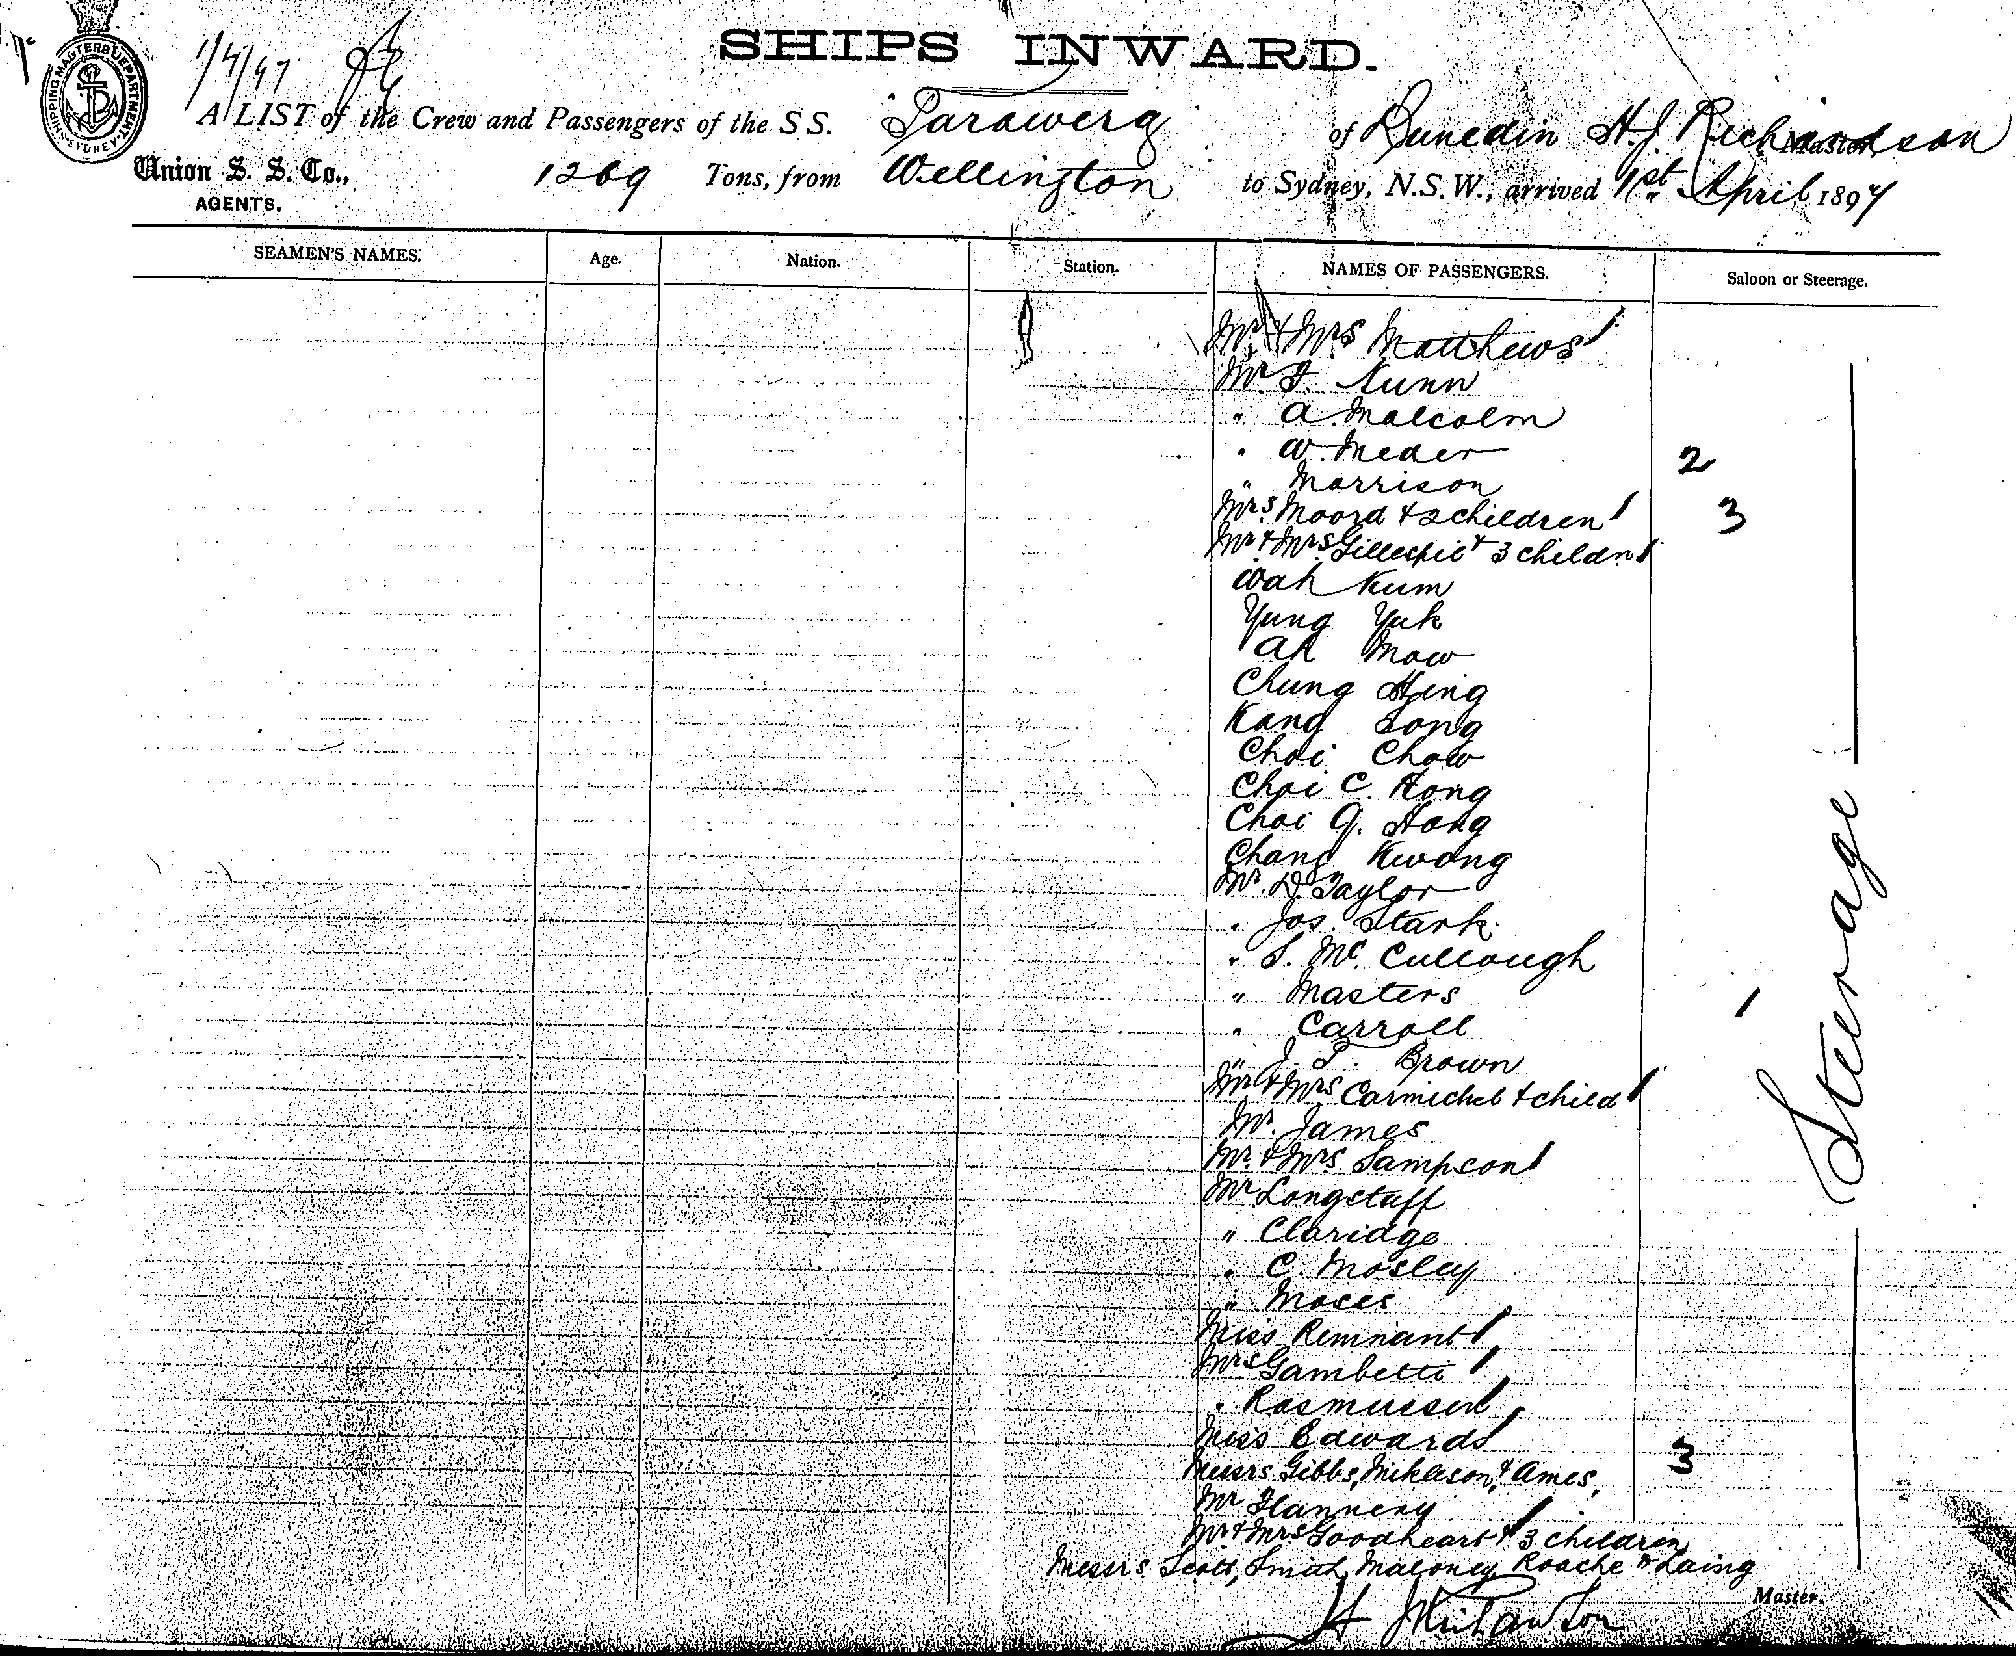 SHIPS INWARD.
SHIPPING MASTERS DEPARTMENT
SYDNEY
1/4/97
A LIST of the Crew and Passengers of the SS. Tarawera of Dunedin H.J. Richardson Master,
Union S. S. Co.,
AGENTS.
1269 Tons, from Wellington to Sydney, N.S.W., arrived 1st April 1897
SEAMEN'S NAMES. Age. Nation. Station. NAMES OF PASSENGERS. Saloon or Steerage.
Mr & Mrs Matthews
Mr. F. Nunn
" A. Malcolm
" W. Meder 2
" Morrison
Mrs. Moord & 2 children 3
Mr & Mrs Gillespie & 3 childn
Wah Kum
Yung Yuk
Ah Mow
Chung Hing
Kang Song
Choi Chow
Choi C. Kong
Choi G. Hong
Chang Kwong
Mr. D. Taylor
" Jos. Stark
" S. Mc. Cullough
" Masters 1
" Carroll
" J. T. Brown
Mr & Mrs Carmichel & child
Mr. James
Mr. & Mrs Sampson
Mr Longstaff
" Claridge
" C. Mosley
" Moses
Miss Remnant
Mrs Gambetti
" Rasmussen
Miss Edwards 3
Messrs Gibbs, Mikleson, & Ames,
Mr Flannery
Mr & Mrs Goodheart & 3 children
Messrs Scott, Smith, Maloney Roache & Laing
Steerage
Master.